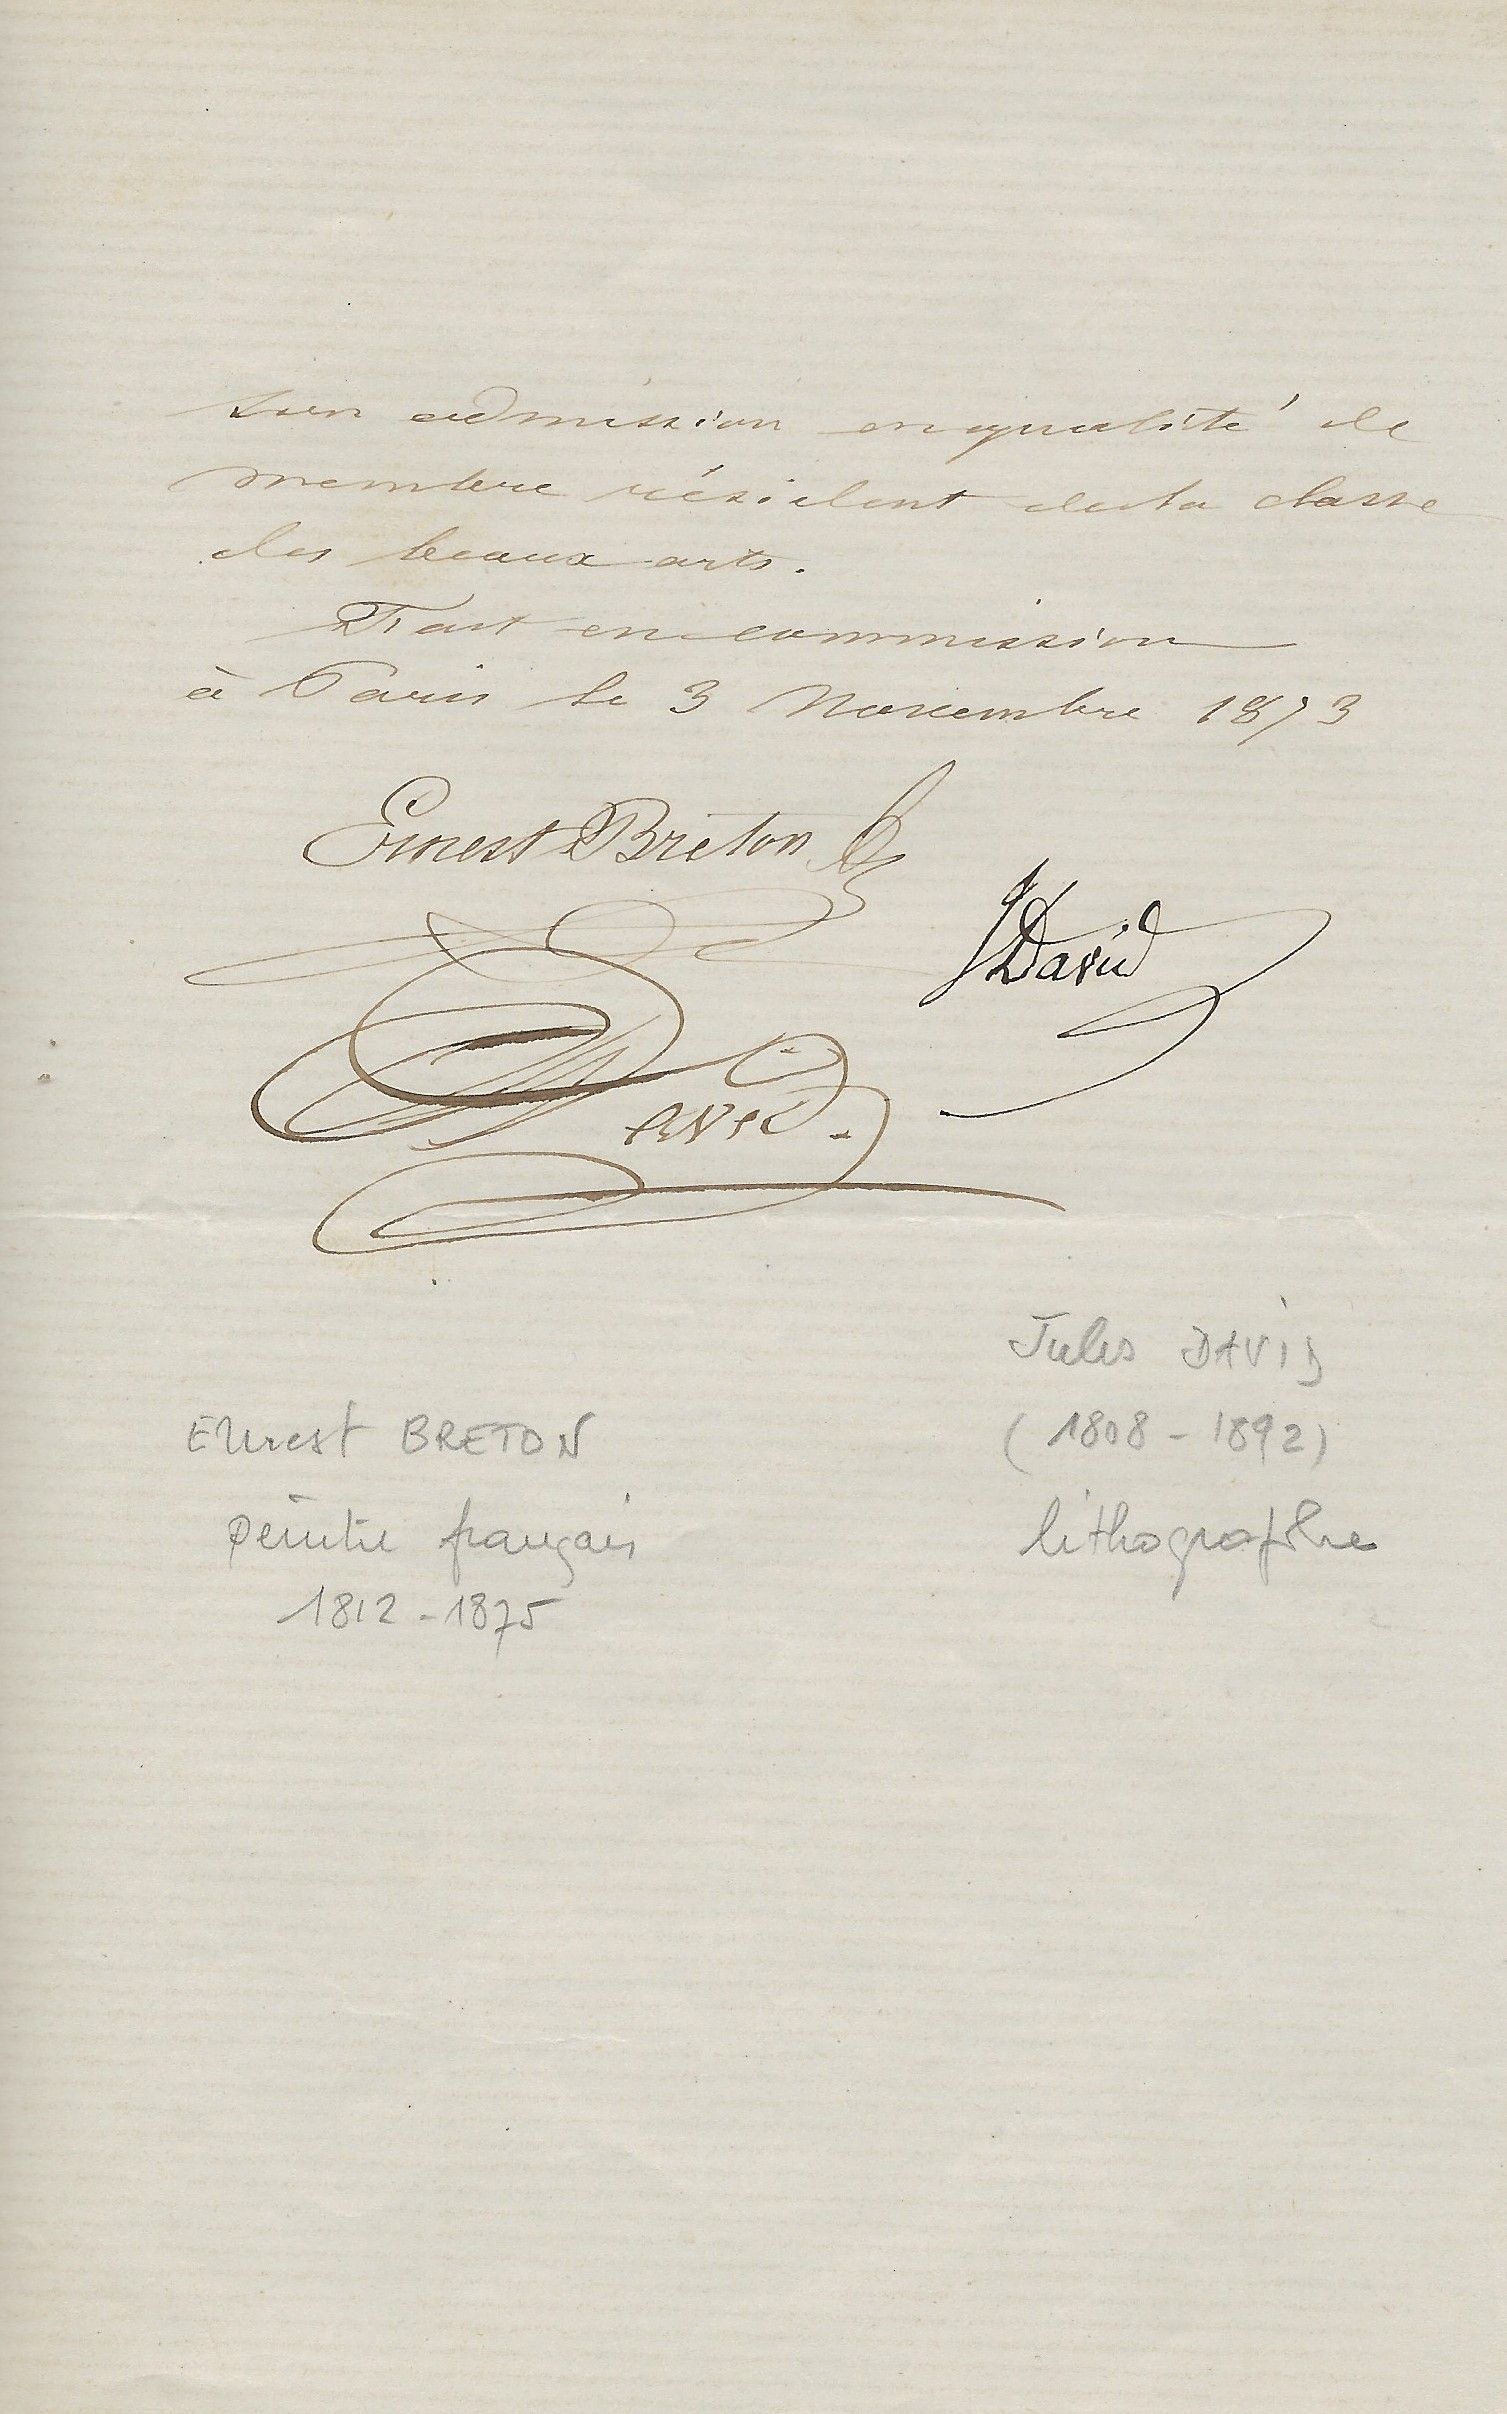 son admission en qualité de
membre résident de la classe
des beaux arts.
Fait en commission
à Paris le 3 Novembre 1873
Ernest Breton
JDavid
Jules DAVID
(1808 - 1892)
lithographe
Ernest BRETON
peintre français
1812 - 1875